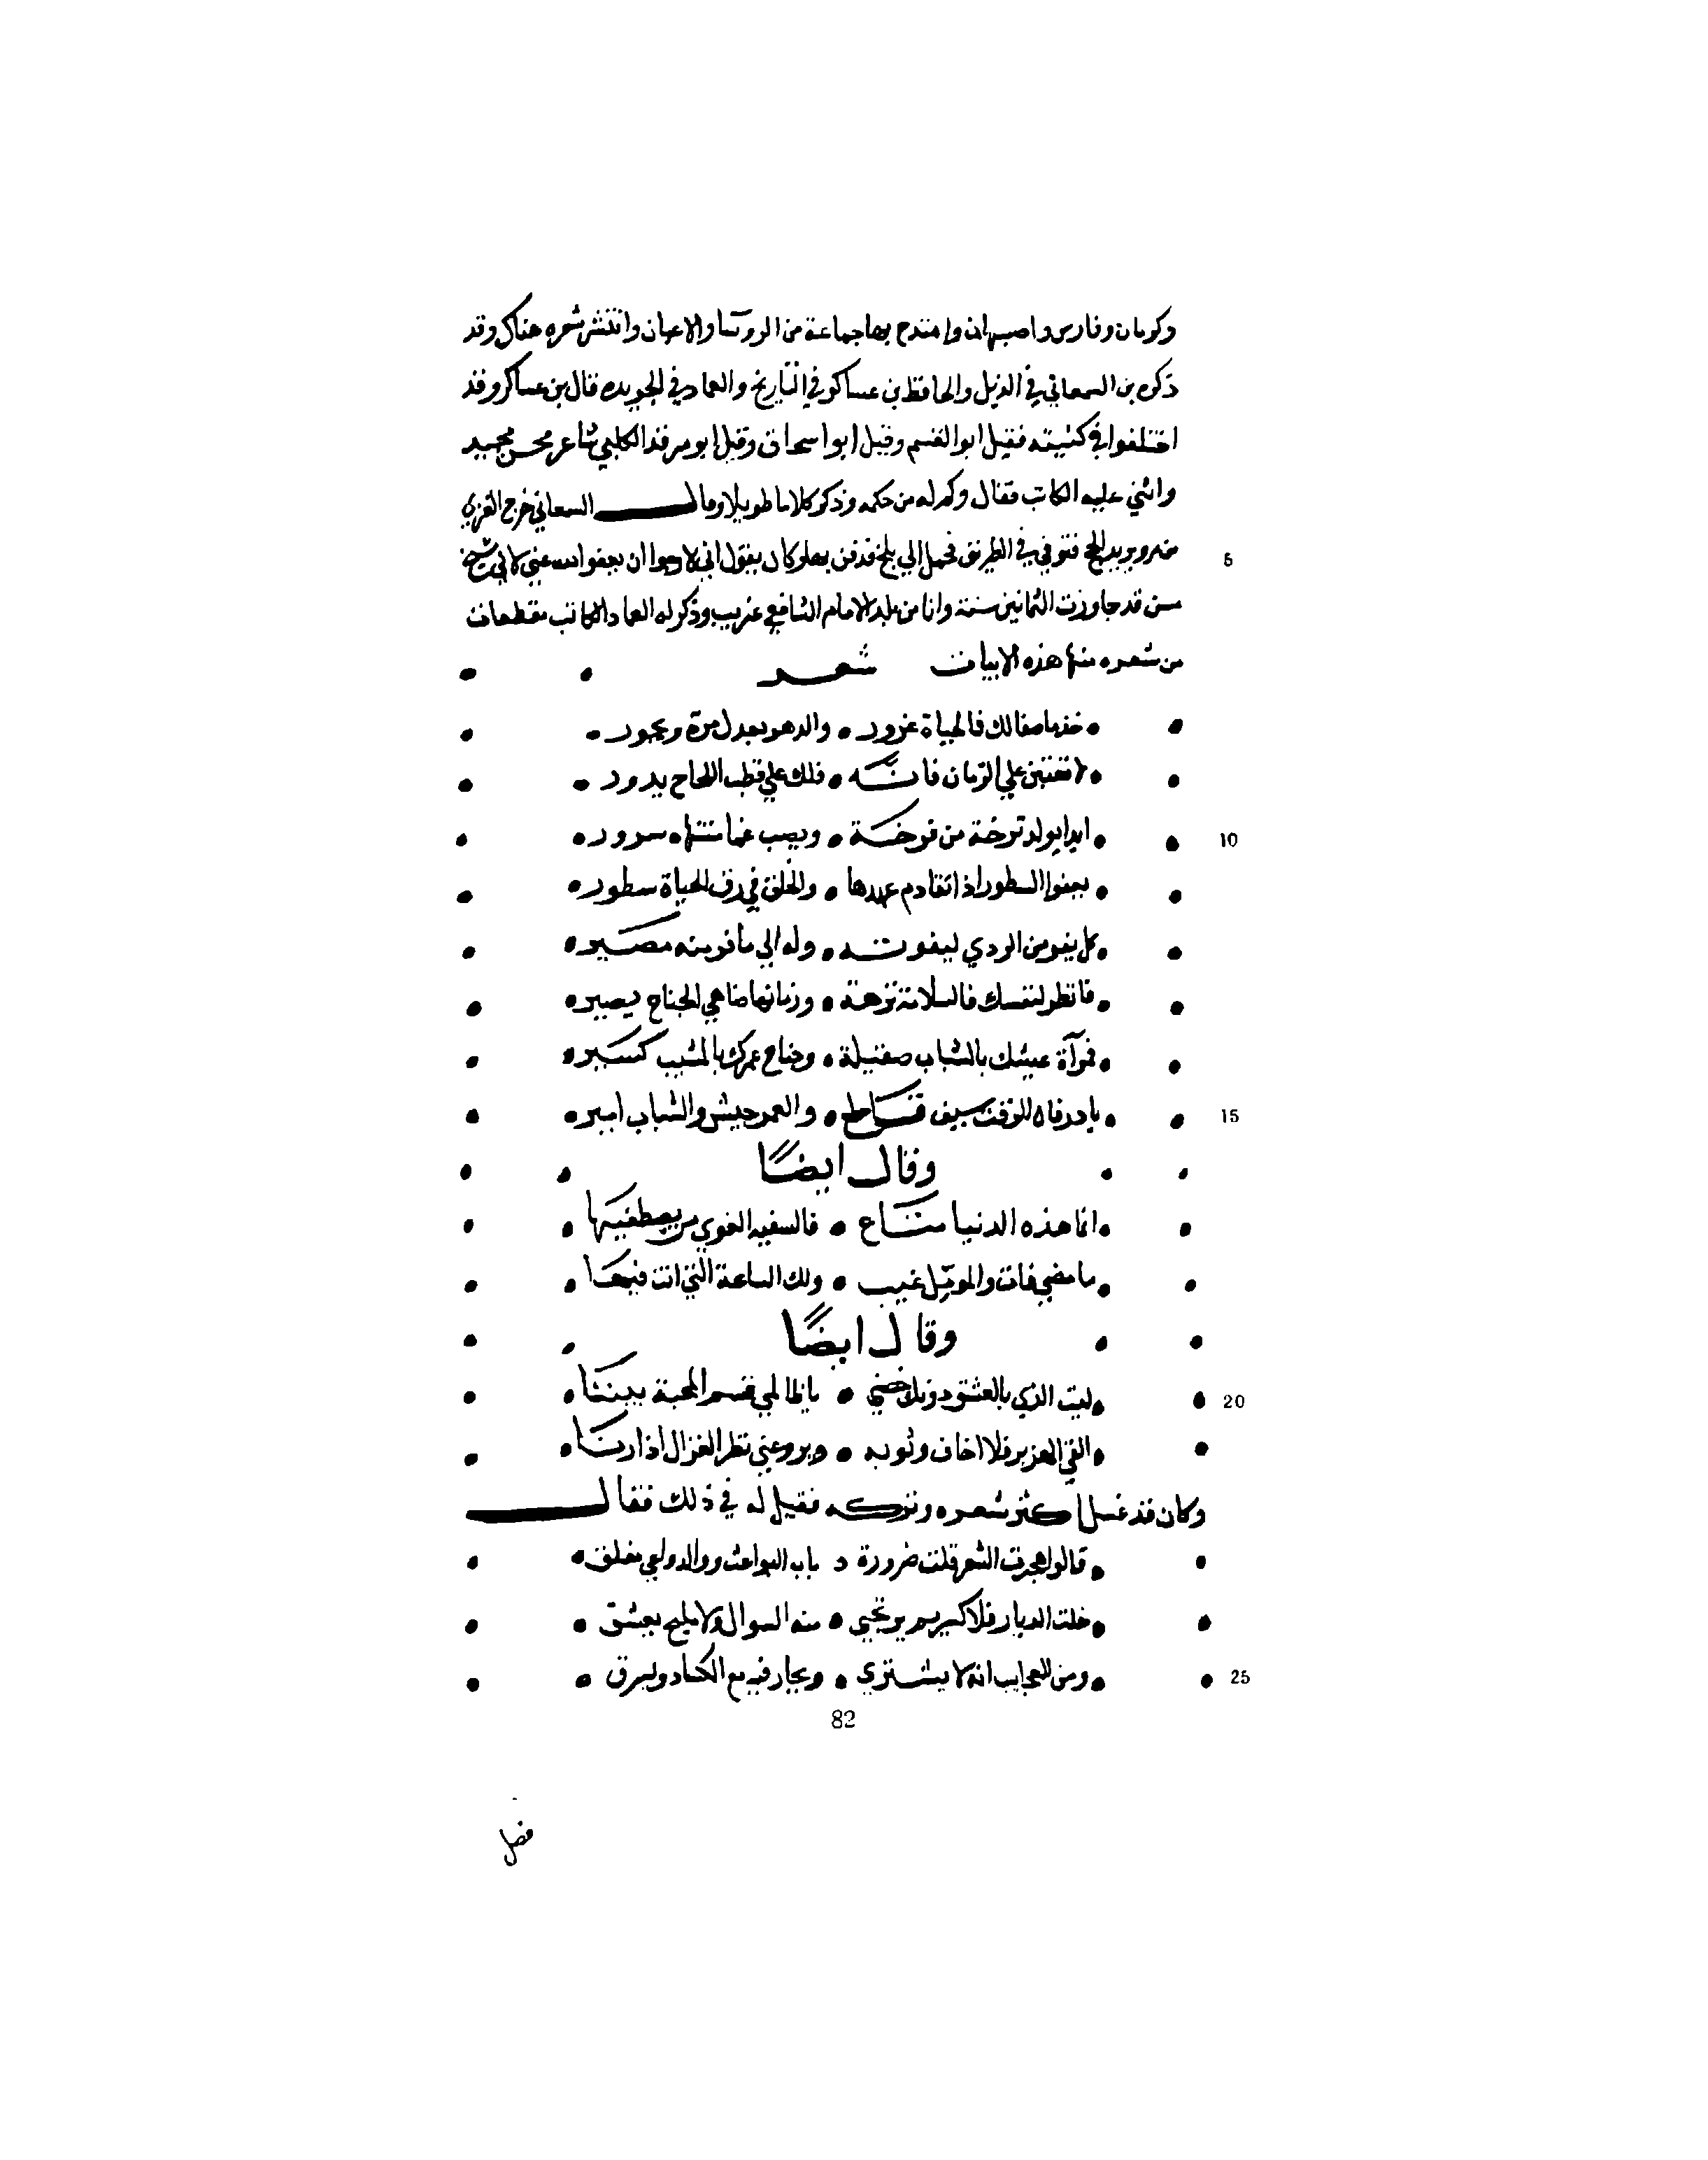 وكرمان وفارس واصبهان وامتدح بها جماعة من الروسا والاعيان وانتشر شعره هناك وقد
ذكره بن السمعاني في الذيل والحافظ بن عساكر في التاريخ والعماد في الجريده قال بن عساكر وقد
اختلفوا في كنيته فقيل ابو القسم وقيل ابو اسحاق وقيل ابو مرقد الكلبي شاعر محسن مجيد
واثني عليه الكاتب فقال وكم له من حكمه وذكر كلاما طويلا وقال السمعاني خرج الغزي
من مرو يريد بلخ فتوفي في الطريق فحمل الي بلخ فدفن بها وكان يقول اني لارجوا ان يعفو الله عني لاني شيخ
5
مسن قد جاوزت الثمانين سنة وانا من بلد الامام الشافعي غريب وذكر له العماد الكاتب مقطعات
من شعره منها هذه الابيات شعر
خذ ما صفا لك فالحياة غرور • والدهر يعدل مرة ويجور
لا تعتبن علي الزمان فانه • فلك علي قطب اللجاج يدور
ابدا يولد ترحة من فرحة • ويصب غما منتهاه سرور
10
يعفوا السطور اذا تقادم عهدها • والخلق في رق الحياة سطور
كل يفر من الردي ليفوته • وله الي ما فر منه مصير
فانظر لنفسك فالسلامة نزهة • وزمانها ضافي الجناح يصير
فمرآة عيشك بالشباب صقيلة • وجناح عمرك بالمشيب كسير
بادر فان الوقت سيف قاطع • والعمر جيش والشباب امير
15
وقال ايضًا
انما هذه الدنيا متاع • فالسفيه الغوي من يصطفيها
ما مضي فات والمومل غيب • ولك الساعة التي انت فيها
وقال ايضًا
ليت الذي بالعشق دونك خصني • يا ظالمي قسم المحبة بيننا
20
القي الهزبر فلا اخاف وثوبه • ويروعني نظر الغزال اذا رنا
وكان قد غسل اكثر شعره وتركه فقيل له في ذلك فقال
قالوا هجرت الشعر قلت ضرورة • باب البواعث والدواعي مغلق
خلت الديار فلا كريم يرتجي • منه النوال ولا مليح يعشق
ومن العجايب انه لا يشتري • ويجار فيه مع الكساد ويسرق
25
82
فضل